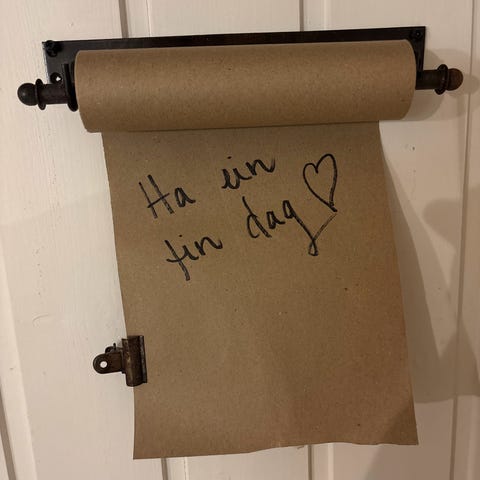 Ha ein
fin dag